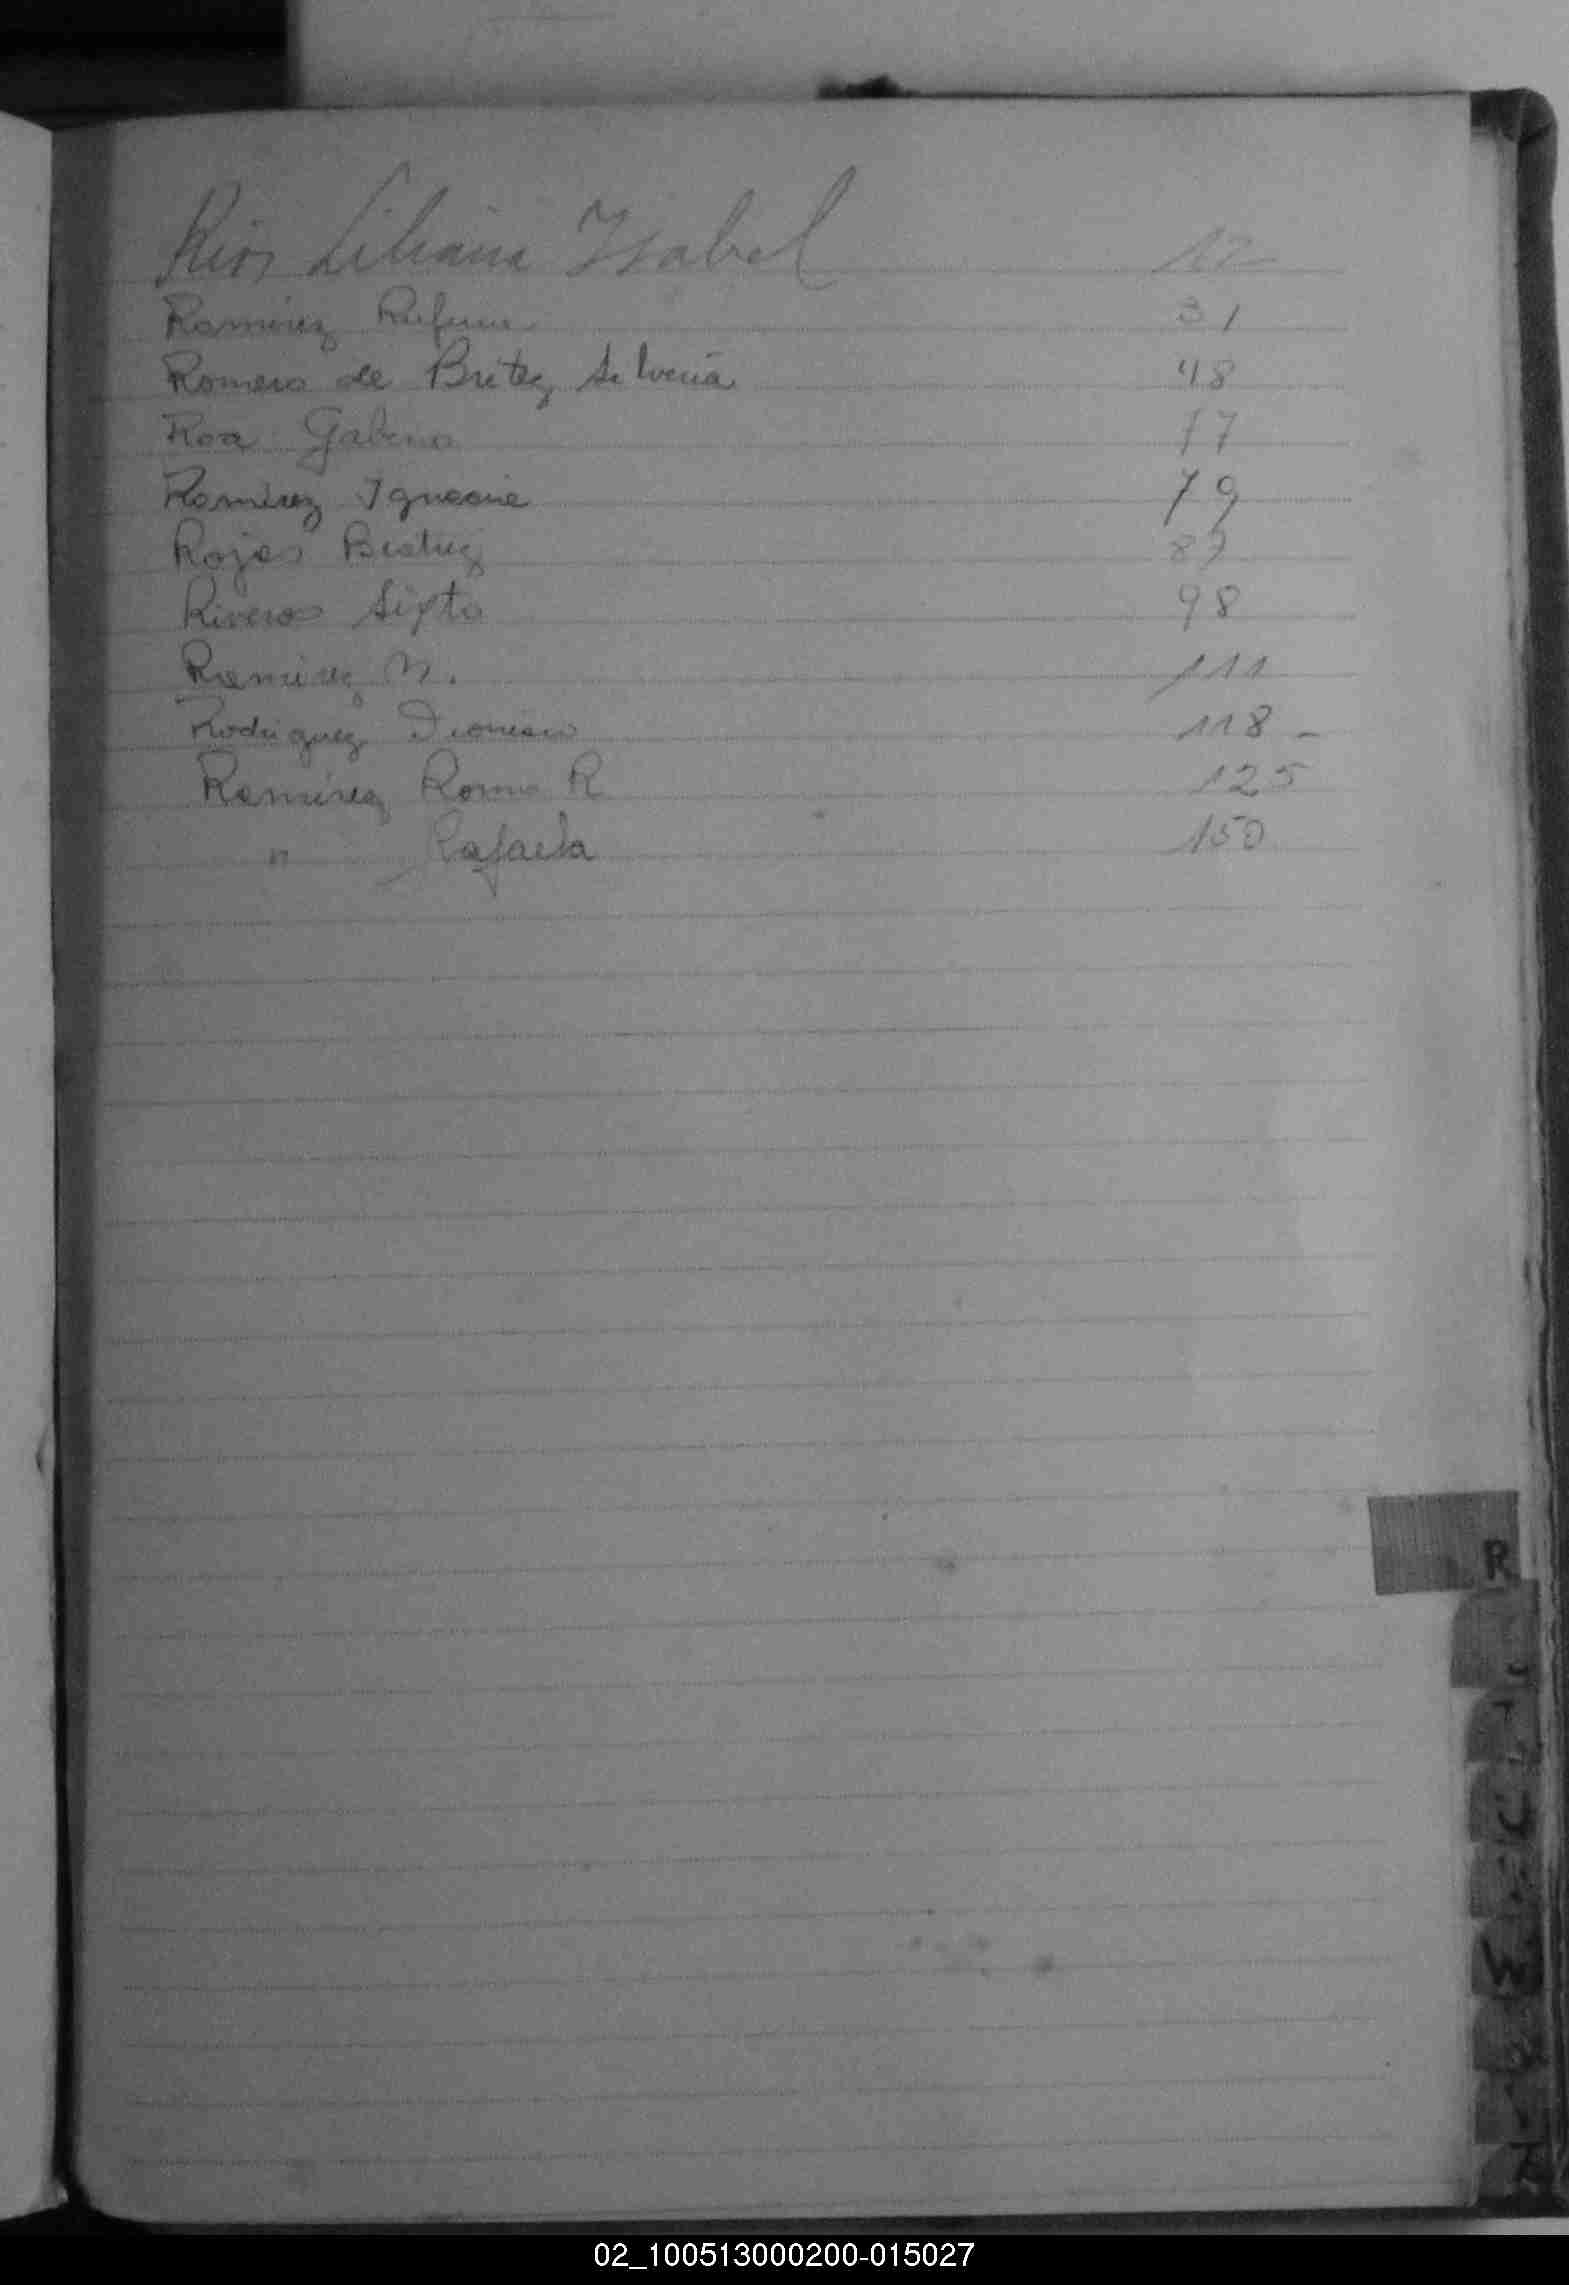 Rios Liliana Ysabel 12
Ramirez Rufina 31
Romero de Britez Silveria 48
Roa Gabino 77
Ramirez Ignacia 79
Rojas Beatriz 87
Riveros Sixto 98
Ramirez N. 111
Rodriguez Dionisio 118 -
Ramirez R 125
" Rafaela 150
R
T
U
W
02_100513000200-015027